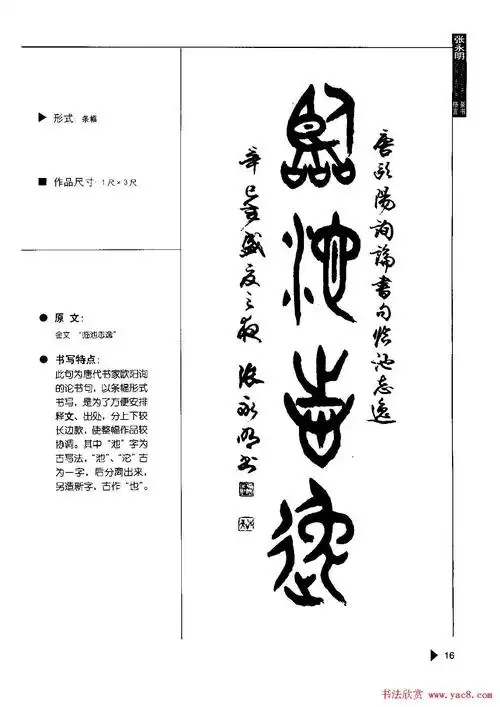 张永明
篆书
格言
▶ 形式 条幅
■ 作品尺寸：1尺×3尺
● 原文：
金文 “临池志逸”
● 书写特点：
此句为唐代书家欧阳询
的论书句，以条幅形式
书写，是为了方便安排
释文、出处，分上下较
长边款，使整幅作品较
协调。其中“池”字为
古写法，“池”、“沱”古
为一字，后分两出来，
另造新字，古作“也”。
唐欧阳询论书句临池志逸
临池志逸
辛巳夏盛夜之夜 张永明书
▶ 16
书法欣赏 www.yac8.com